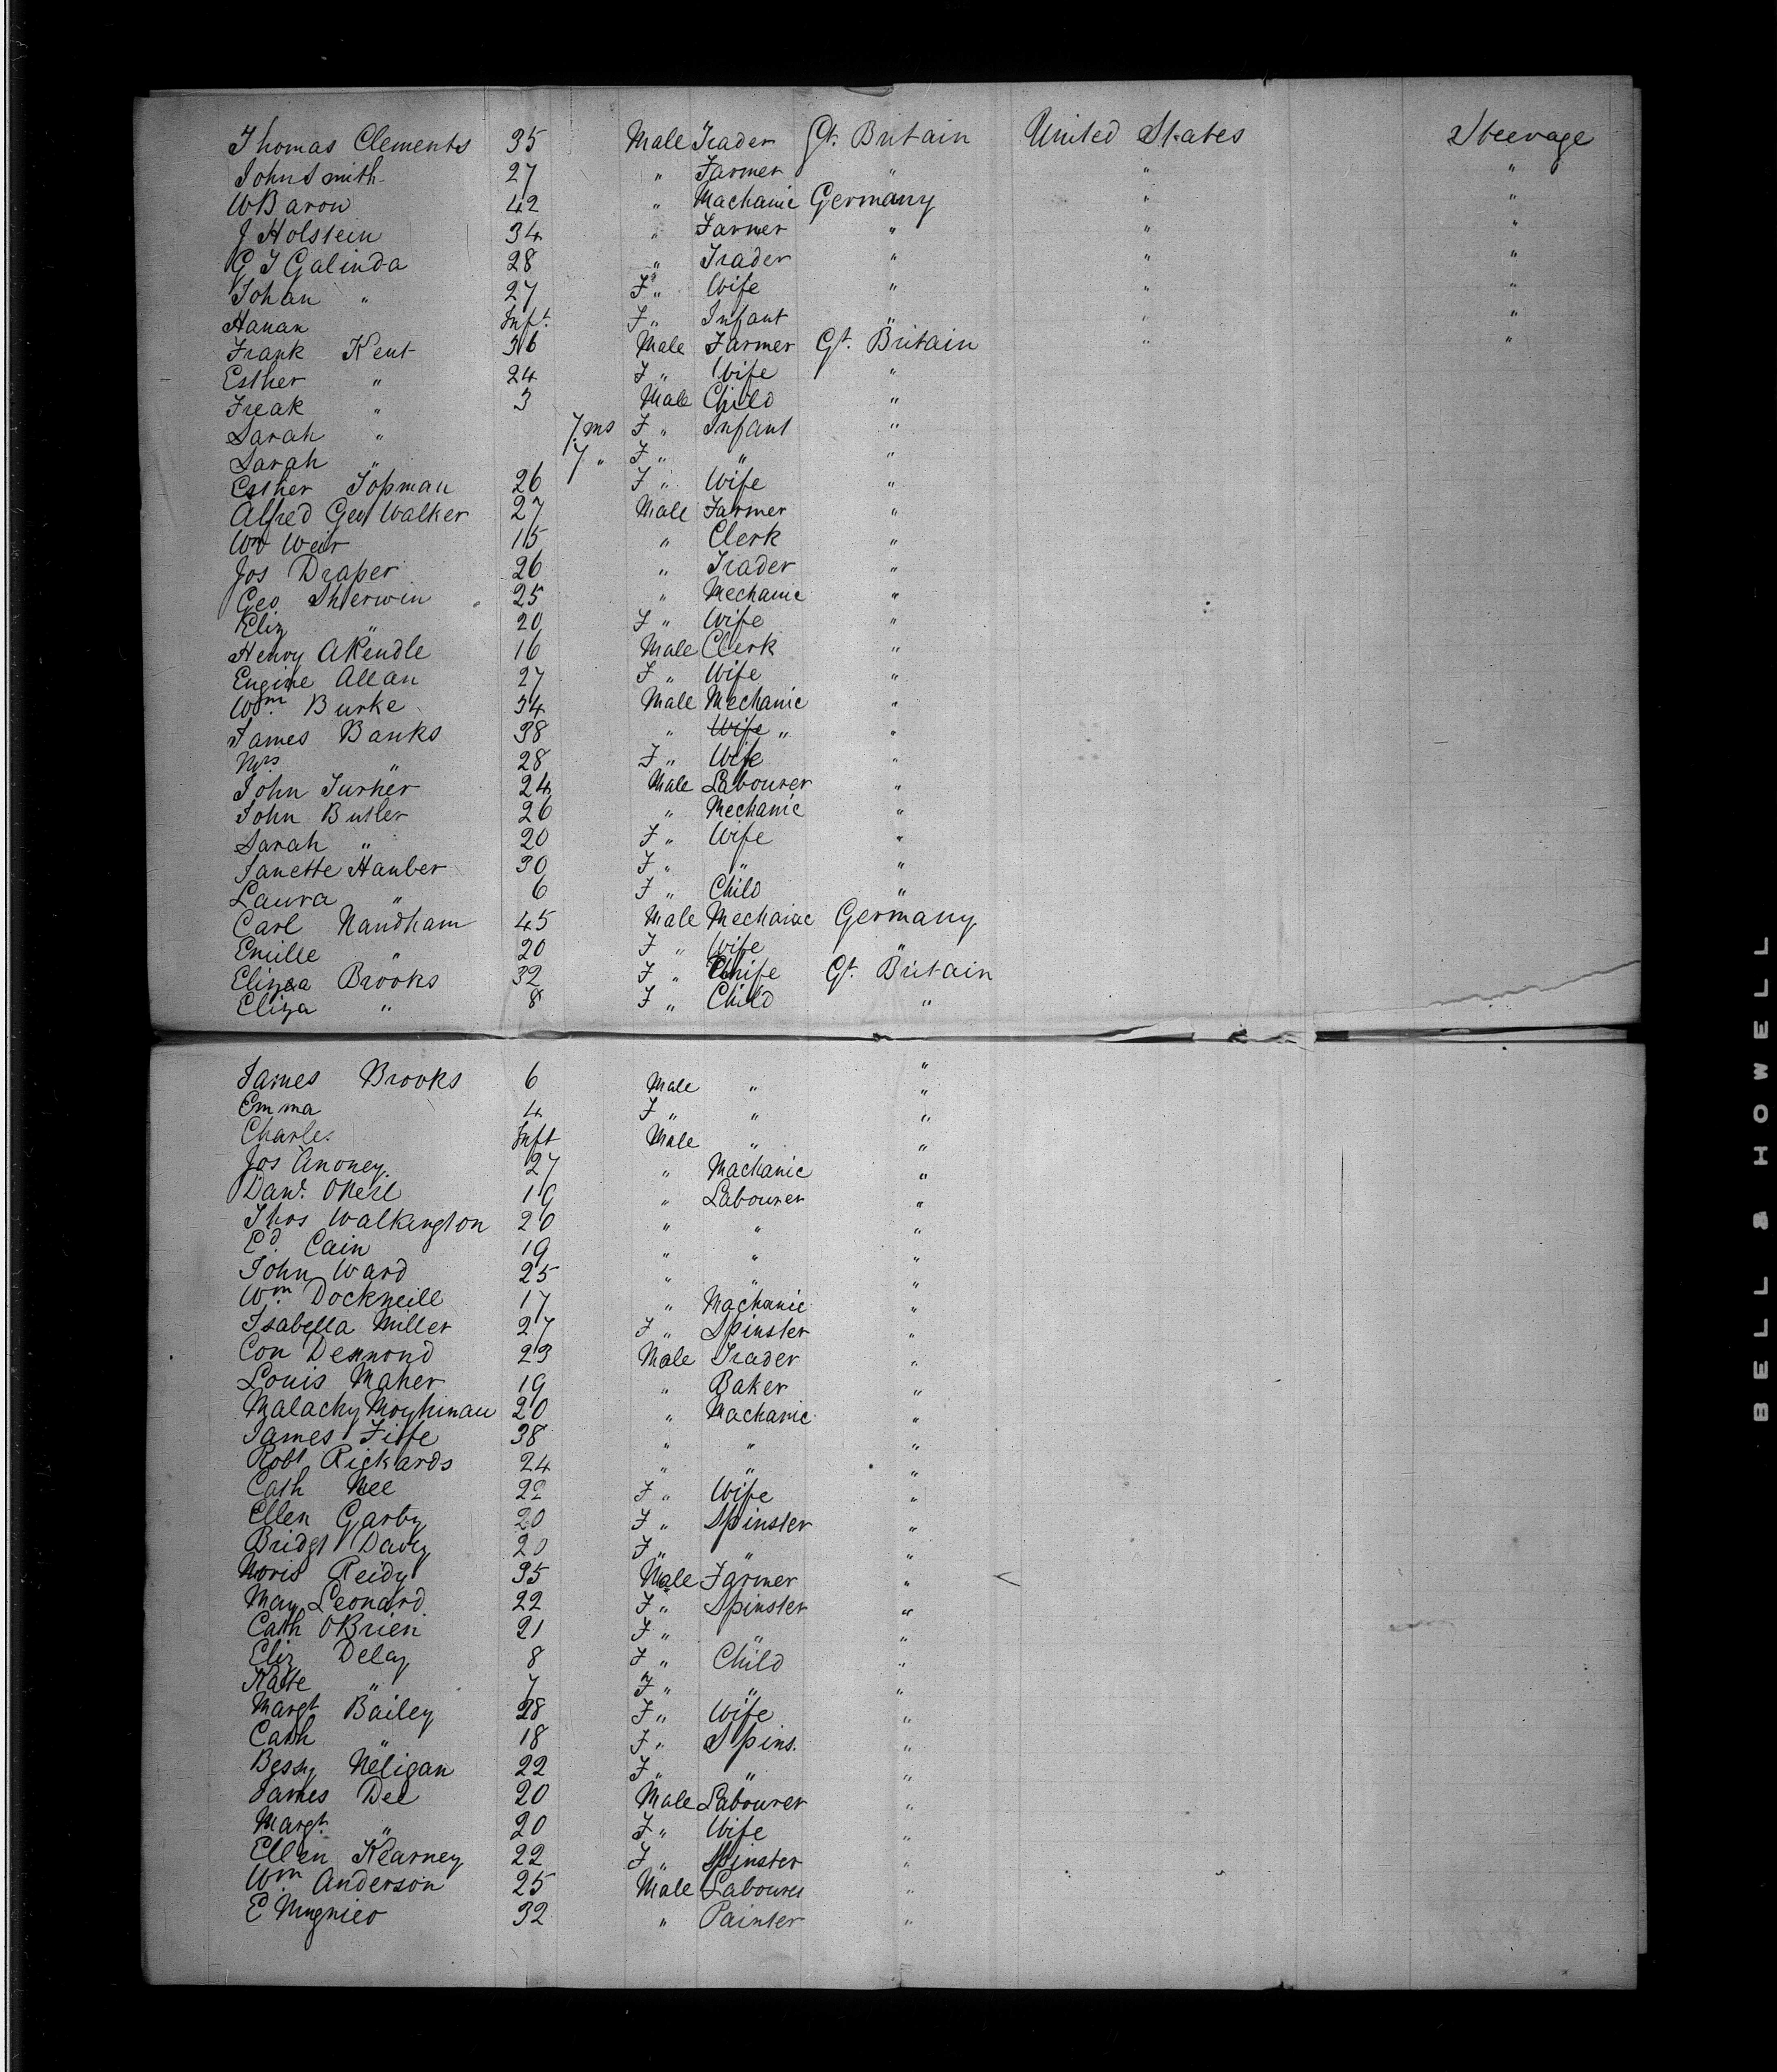 Thomas Clements 35 Male Trader Gt. Britain United States Steerage
John Smith 27 " Farmer " " "
W Baron 42 " Machanic Germany " "
J Holstein 34 " Farmer " " "
G J Galinda 28 " Trader " " "
Johan " 27 F " Wife " " "
Hanan Inft. F " Infant " " "
Frank Kent 36 Male Farmer Gt. Britain " "
Esther " 24 F " Wife "
Freak " 3 Male Child "
Sarah " 7 ms F " Infant "
Sarah " 7 " F " " "
Esther Topman 26 F " Wife "
Alfred Geo Walker 27 Male Farmer "
Wm Weir 15 " Clerk "
Jos Draper 26 " Trader "
Geo Sherwin 25 " Mechanic "
Eliz " 20 F " Wife "
Henry A Kendle 16 Male Clerk "
Engine Allan 27 F " Wife "
Wm. Burke 34 Male Mechanic "
James Banks 38 " Wife " "
Mrs " 28 F " Wife "
John Turner 24 Male Labourer "
John Butler 26 " Mechanic "
Sarah " 20 F " Wife "
Janette Hanber 30 F " " "
Laura " 6 F " Child "
Carl Nandham 45 Male Mechanic Germany
Emille " 20 F " Wife "
Elizea Brooks 32 F " Wife Gt. Britain
Eliza " 8 F " Child "
James Brooks 6 Male " " "
Emma 4 F " " "
Charles Inft Male " "
Jos Anoney 27 " Machanic "
Danl. ONeil 19 " Labourer "
Thos Walkington 20 " " "
Ed. Cain 19 " " "
John Ward 25 " " "
Wm. Dockneill 17 " Machanic "
Isabella Miller 27 F " Spinster "
Con Desmond 23 Male Trader "
Louis Maher 19 " Baker "
Malachy Moyhinan 20 " Machanic "
James Fiffe 38 " " "
Robt Rickards 24 " " "
Cath Nee 22 F " Wife "
Ellen Garby 20 F " Spinster "
Bridgt Davy 20 F " " "
Noris Reidy 35 Male Farmer "
May Leonard 22 F " Spinster "
Cath OBrien 21 F " " "
Eliz Delay 8 F " Child "
Katte " 7 F " " "
Margt Bailey 28 F " Wife "
Cath " 18 F " Spins. "
Bessy Neligan 22 F " " "
James Dee 20 Male Labourer "
Margt. " 20 F " Wife "
Ellen Kearney 22 F " Spinster "
Wm Anderson 25 Male Labourer "
E 32 " Painter "
BELL & HOWELL